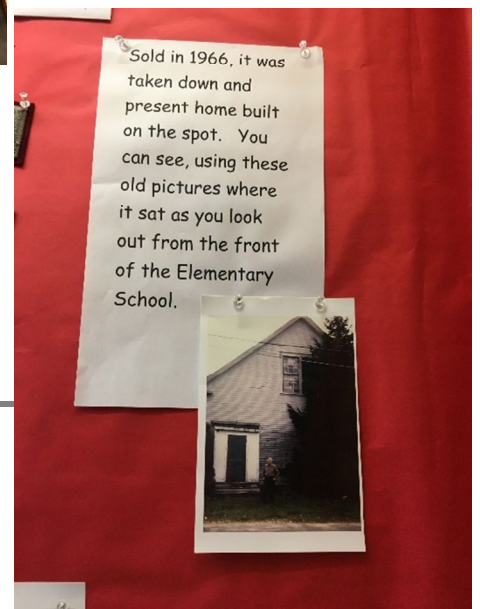 Sold in 1966, it was
taken down and
present home built
on the spot. You
can see, using these
old pictures where
it sat as you look
out from the front
of the Elementary
School.